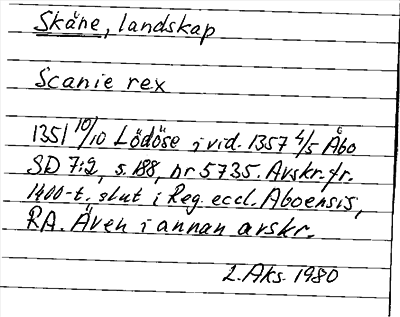 Skåne, landskap
Scanie rex
1351 10/10 Lödöse i vid. 1357 4/5 Åbo
SD 7:2, s. 188, nr 5735. Avskr. fr.
1400-t. slut i Reg. eccl. Aboensis,
RA. Även i annan avskr.
L. Aks. 1980